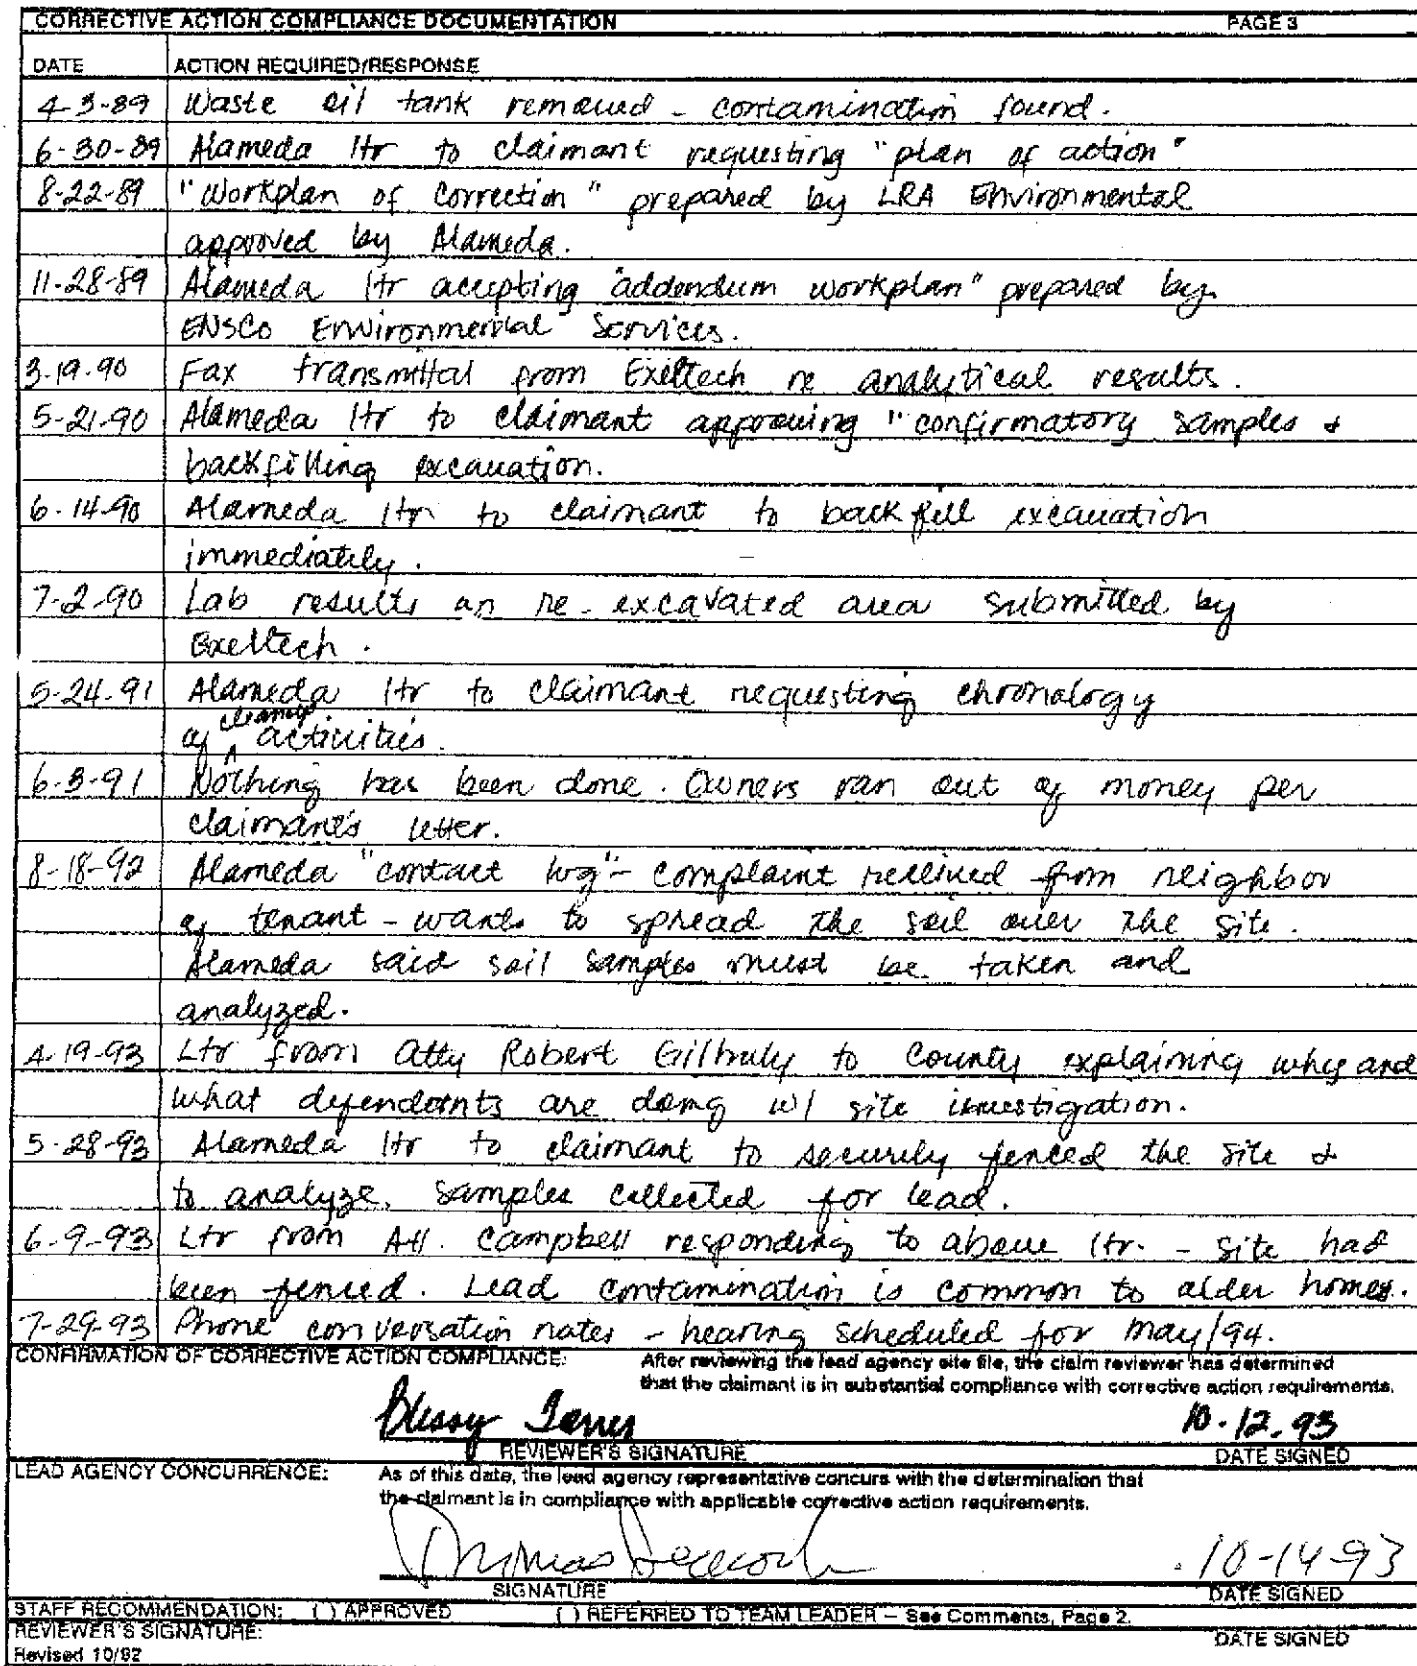 CORRECTIVE ACTION COMPLIANCE DOCUMENTATION PAGE 3
DATE ACTION REQUIRED/RESPONSE
4-3-89 Waste oil tank removed - contamination found.
6-30-89 Alameda ltr to claimant requesting "plan of action"
8-22-89 "Workplan of Correction" prepared by LRA Environmental
approved by Alameda.
11-28-89 Alameda ltr accepting "addendum workplan" prepared by
ENSCO Environmental Services.
3-19-90 Fax transmittal from Exeltech re analytical results.
5-21-90 Alameda ltr to claimant approving "confirmatory samples &
backfilling excavation.
6-14-90 Alameda ltr to claimant to back fill excavation
immediately.
7-2-90 Lab results on re-excavated area submitted by
Exeltech.
5-24-91 Alameda ltr to claimant requesting chronology
of cleanup activities.
6-3-91 Nothing has been done. Owners ran out of money per
claimant's letter.
8-18-92 Alameda "contact log" - complaint received from neighbor
of tenant - wants to spread the soil over the site.
Alameda said soil samples must be taken and
analyzed.
4-19-93 Ltr from Atty Robert to County explaining why and
what defendants are doing w/ site investigation.
5-28-93 Alameda ltr to claimant to securely fenced the site &
to analyze samples collected for lead.
6-9-93 Ltr from Att. Campbell responding to above ltr. - site had
been fenced. Lead contamination is common to older homes.
7-29-93 Phone conversation notes - hearing scheduled for May/94.
CONFIRMATION OF CORRECTIVE ACTION COMPLIANCE: After reviewing the lead agency site file, the claim reviewer has determined
that the claimant is in substantial compliance with corrective action requirements.
Blessy Torres 10-12-93
REVIEWER'S SIGNATURE DATE SIGNED
LEAD AGENCY CONCURRENCE: As of this date, the lead agency representative concurs with the determination that
the claimant is in compliance with applicable corrective action requirements.
Thomas 10-14-93
SIGNATURE DATE SIGNED
STAFF RECOMMENDATION: ( ) APPROVED ( ) REFERRED TO TEAM LEADER - See Comments, Page 2.
REVIEWER'S SIGNATURE: DATE SIGNED
Revised 10/92